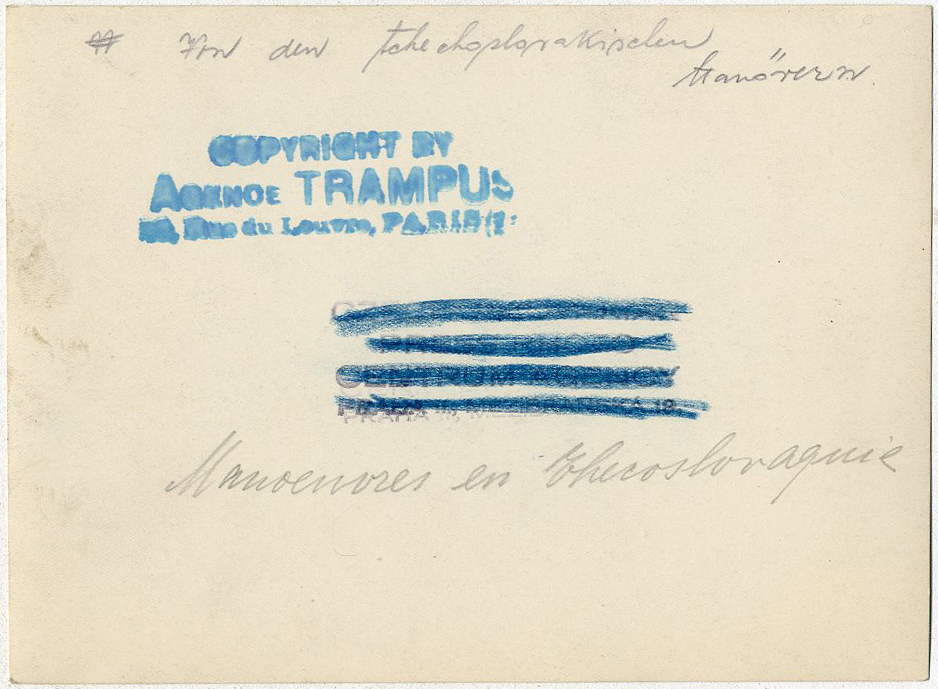 Von den tchechoslovakischen
Manövern
COPYRIGHT BY
AGENCE TRAMPUS
Rue du Louvre, PARIS (1
PRAHA
Manoeuvres en Thecoslovaquie